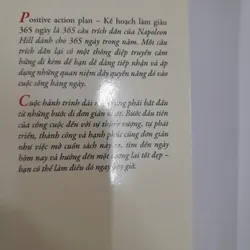 Positive action plan – Kế hoạch làm giàu
365 ngày là 365 câu trích dẫn của Napoleon
Hill dành cho 365 ngày trong năm. Mỗi câu
trích dẫn lại có một thông điệp truyền cảm
hứng đi kèm để bạn dễ dàng tiếp nhận và áp
dụng những quan niệm đầy quyền năng đó vào
cuộc sống hàng ngày.
Cuộc hành trình dài nào cũng phải bắt đầu
từ những bước đi đơn giản nhất. Bước đầu tiên
của công cuộc đến với sự thịnh vượng, tự phát
triển, thành công và hạnh phúc cũng đơn giản
như việc mở cuốn sách này ra, tìm đến ngày
hôm nay và hướng đến một tương lai tốt đẹp –
bạn có thể làm điều đó ngay bây giờ.